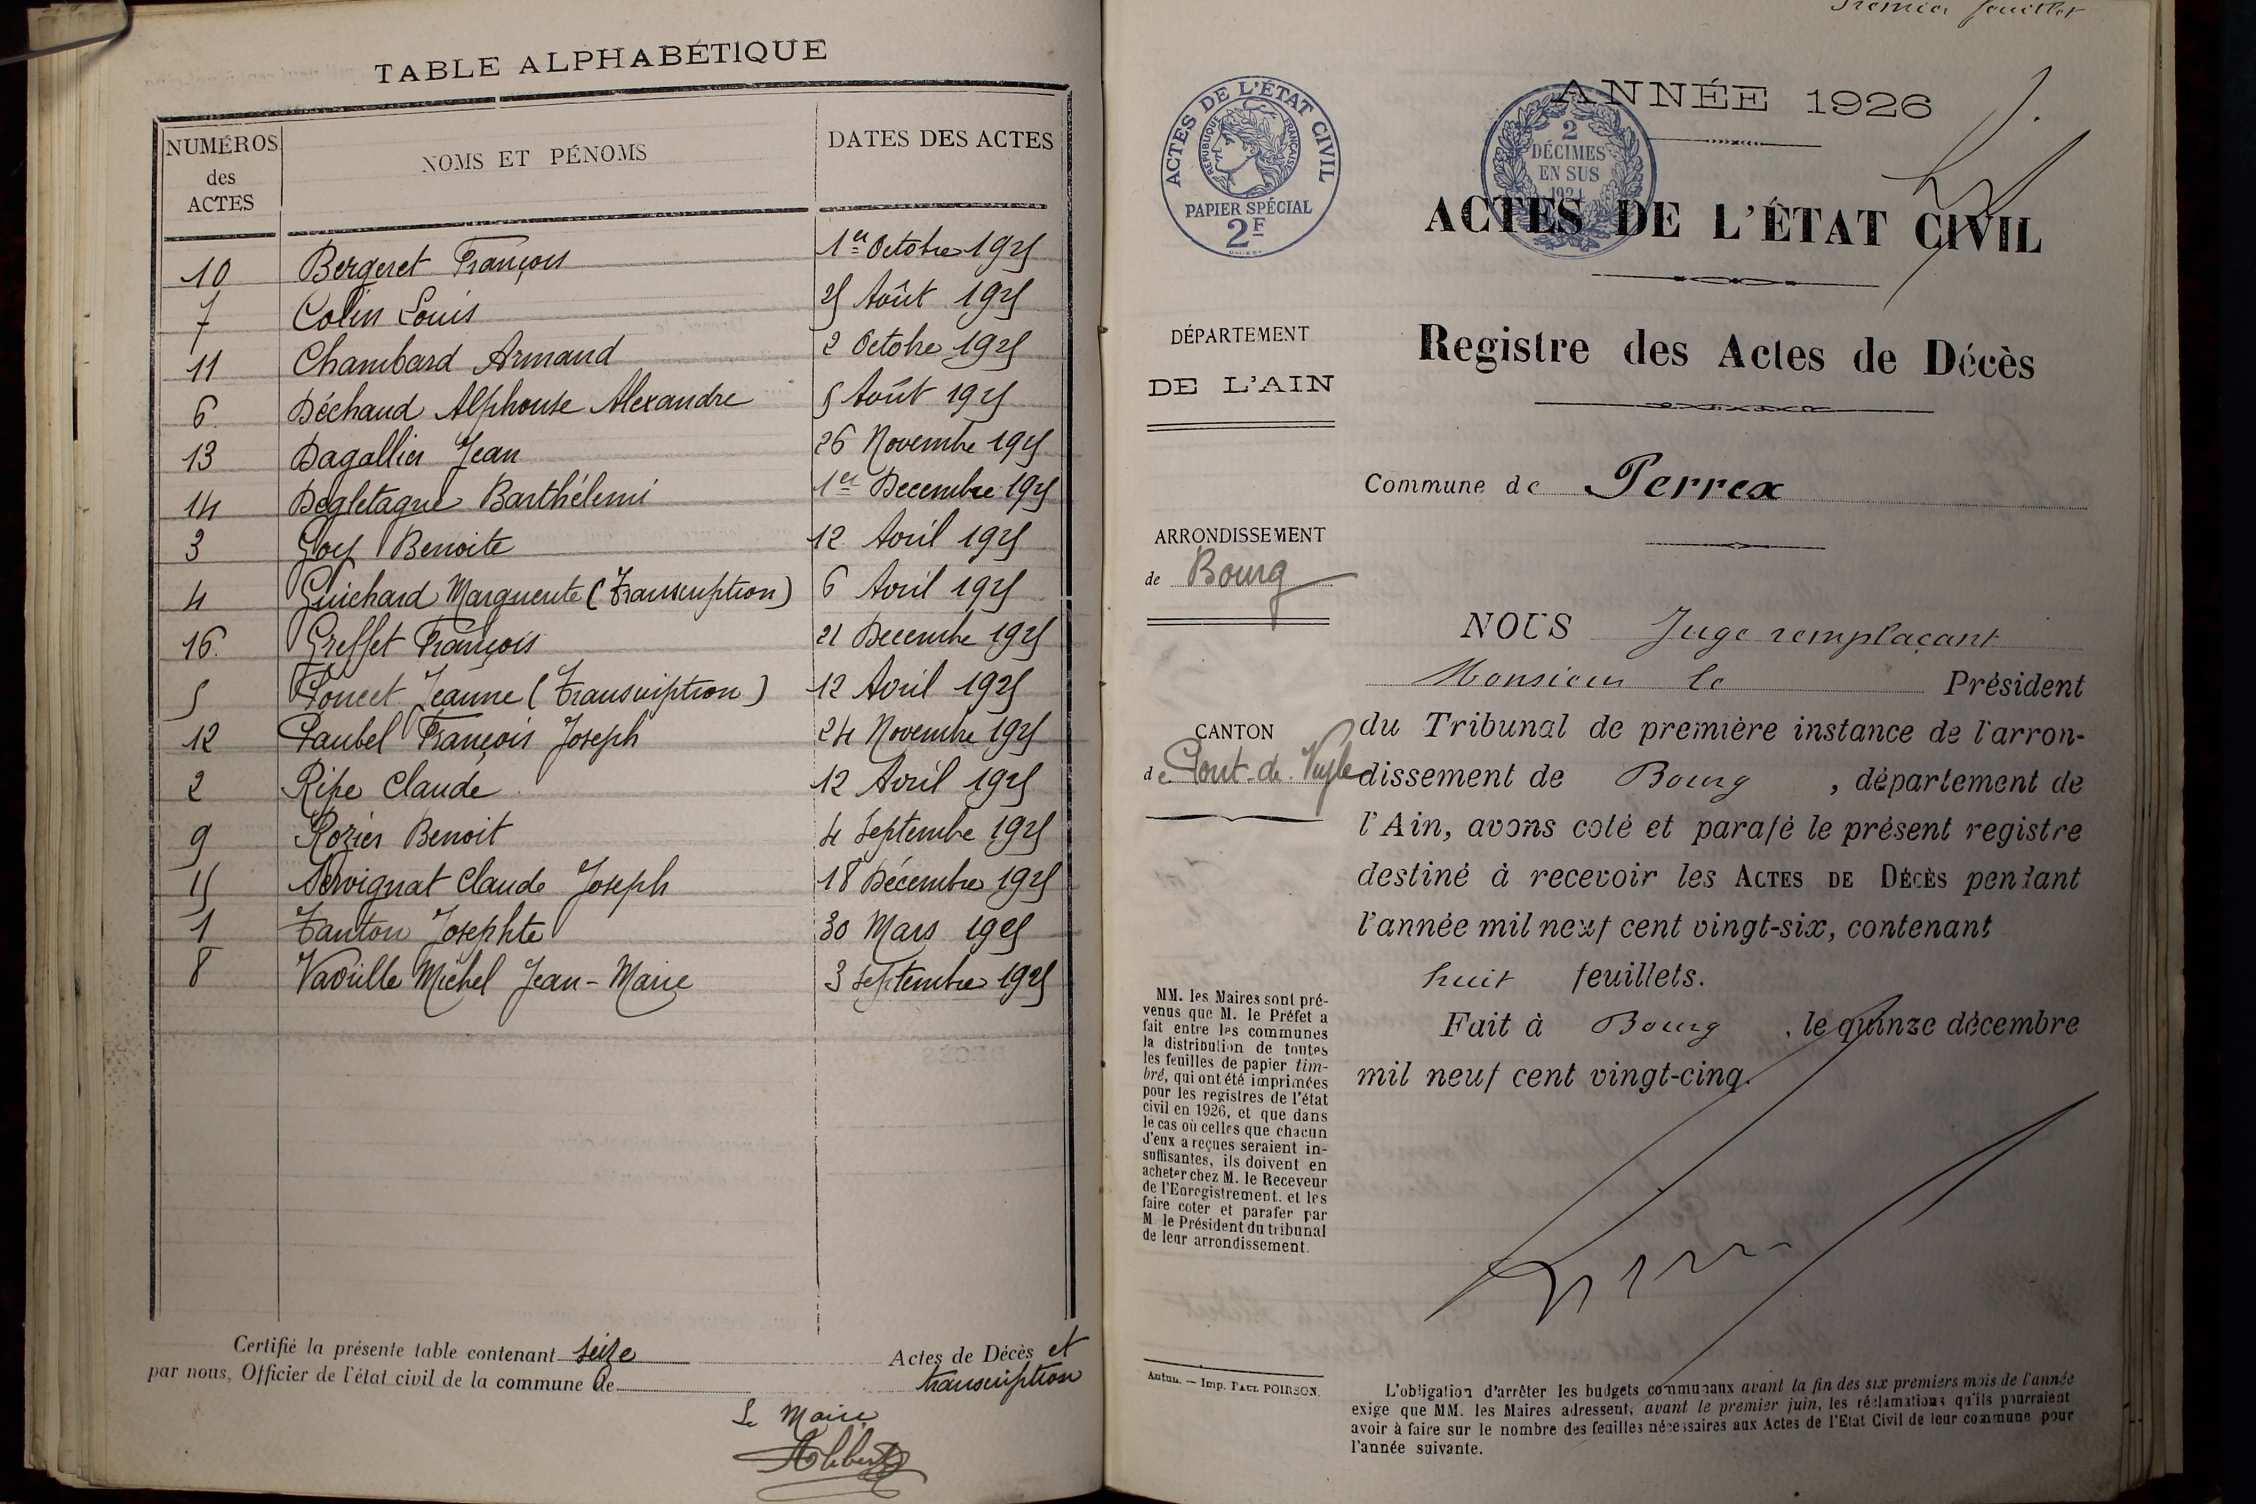 TABLE ALPHABÉTIQUE
NUMÉROS des ACTES
NOMS ET PÉNOMS
DATES DES ACTES
10 Bergeret François 1er Octobre 1925
7 Colin Louis 25 Août 1925
11 Chambard Armand 2 Octobre 1925
6 Déchaud Alphonse Alexandre 5 Août 1925
13 Dagallier Jean 26 Novembre 1925
14 Degletagne Barthélemi 1er Decembre 1925
3 Goy Benoite 12 Avril 1925
4 Guichard Marguerite (Transcription) 6 Avril 1925
16. Greffet François 21 Decembre 1925
5 Poncet Jeanne (Transcription) 12 Avril 1925
12 Paubel François Joseph 24 Novembre 1925
2 Ripe Claude 12 Avril 1925
9 Rozier Benoit 4 Septembre 1925
15 Servignat Claude Joseph 18 Décembre 1925
1 Tanton Josephte 30 Mars 1925
8 Vavrille Michel Jean-Marie 3 Septembre 1925
Certifié la présente table contenant seize Actes de Décès et
par nous, Officier de l'état civil de la commune de transcription
Le Maire
Premier feuillet
ANNÉE 1926
ACTES DE L'ÉTAT CIVIL
RÉPUBLIQUE FRANÇAISE
PAPIER SPÉCIAL
2F
2
DÉCIMES
EN SUS
1924
ACTES DE L'ÉTAT CIVIL
Registre des Actes de Décès
DÉPARTEMENT
DE L'AIN
Commune de Perrex
ARRONDISSEMENT
de Bourg
CANTON
de Pont-de-Veyle
NOUS Juge remplaçant
Monsieur le Président
du Tribunal de première instance de l'arron-
dissement de Bourg, département de
l'Ain, avons coté et parafé le présent registre
destiné à recevoir les ACTES DE DÉCÈS pendant
l'année mil neuf cent vingt-six, contenant
huit feuillets.
Fait à Bourg, le quinze décembre
mil neuf cent vingt-cinq.
MM. les Maires sont pré-
venus que M. le Préfet a
fait entre les communes
la distribution de toutes
les feuilles de papier tim-
bré, qui ont été imprimées
pour les registres de l'état
civil en 1926, et que dans
le cas où celles que chacun
d'eux a reçues seraient in-
suffisantes, ils doivent en
acheter chez M. le Receveur
de l'Enregistrement, et les
faire coter et parafer par
M. le Président du tribunal
de leur arrondissement.
Autun. — Imp. PAUL POIRSON.
L'obligation d'arrêter les budgets communaux avant la fin des six premiers mois de l'année
exige que MM. les Maires adressent, avant le premier juin, les réclamations qu'ils pourraient
avoir à faire sur le nombre des feuilles nécessaires aux Actes de l'Etat Civil de leur commune pour
l'année suivante.